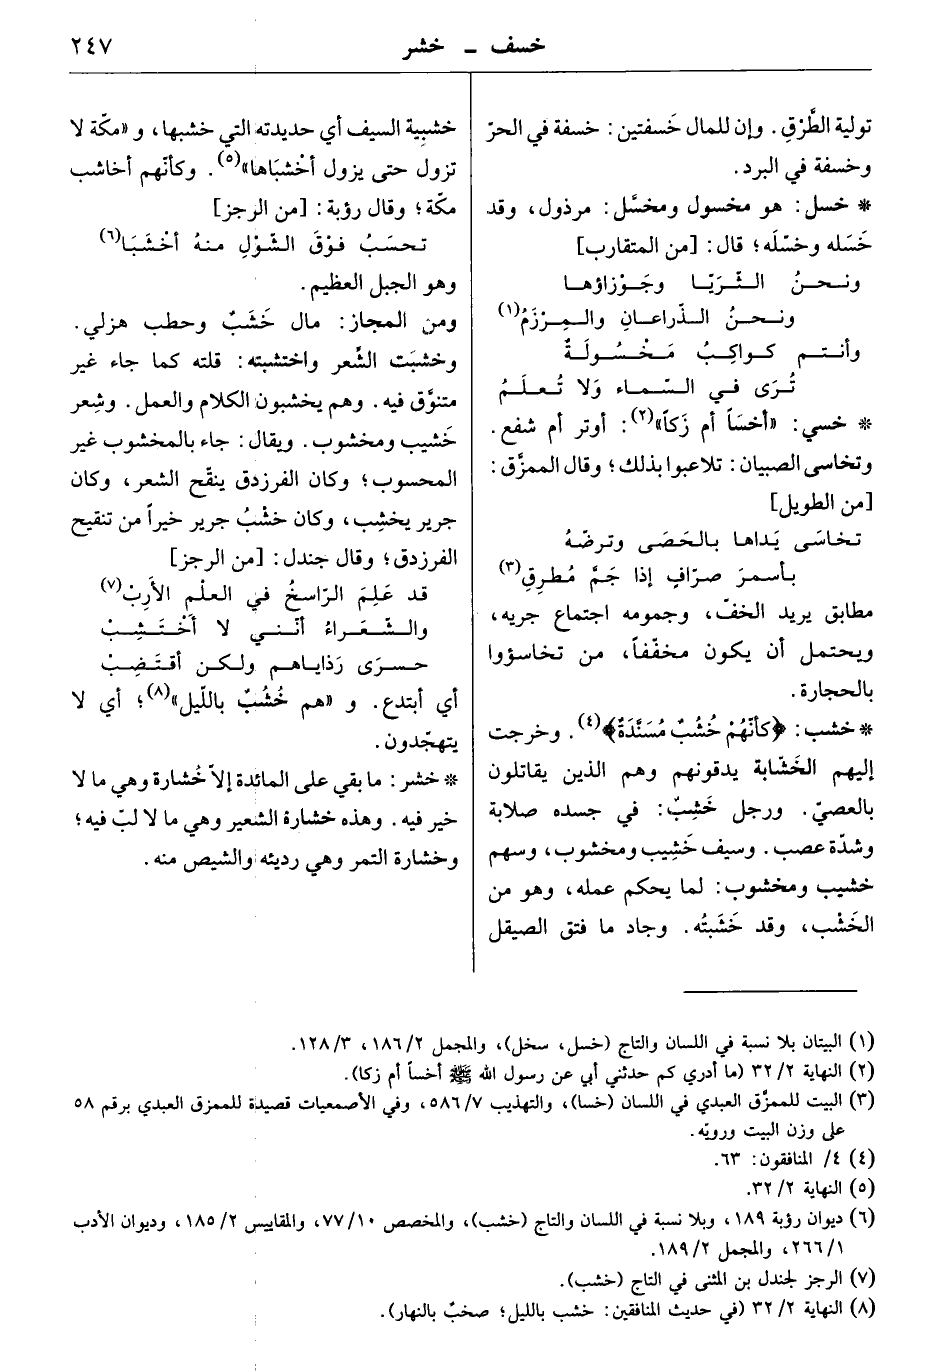 خسف ـ خشر
٢٤٧
تولية الطَّرْقِ. وإن للمال خَسفتين: خسفة في الحرّ
وخسفة في البرد.
* خسل: هو مخسول ومخسَّل: مرذول، وقد
خَسَله وخسّلَه؛ قال: [من المتقارب]
ونـحـنُ الـثُـرَيّـا وجَـوْزاؤهـا
ونـحـنُ الـذّراعـانِ والـمِـرْزَمُ(١)
وأنـتـم كـواكِـبُ مَـخْـسُـولَـةٌ
تُـرَى فـي الـسّـمـاء وَلا تُـعـلَـمُ
* خسي: «أخسَاً أم زَكاً»(٢): أوتر أم شفع.
وتخاسى الصبيان: تلاعبوا بذلك؛ وقال الممزَّق:
[من الطويل]
تـخـاسَـى يَـداهـا بـالـحَـصَـى وتـرضّـهُ
بـأسـمـرَ صـرّافٍ إذا جَـمَّ مُـطـرِقِ(٣)
مطابق يريد الخفّ، وجمومه اجتماع جريه،
ويحتمل أن يكون مخفّفاً، من تخاسؤوا
بالحجارة.
* خشب: ﴿كأنّهُمْ خُشُبٌ مُسَنَّدَةٌ﴾(٤). وخرجت
إليهم الخَشّابة يدقونهم وهم الذين يقاتلون
بالعصيّ. ورجل خَشِبٌ: في جسده صلابة
وشدّة عصب. وسيف خَشِيب ومخشوب، وسهم
خشيب ومخشوب: لما يحكم عمله، وهو من
الخَشْب، وقد خَشَبتُه. وجاد ما فتق الصيقل
خشيبة السيف أي حديدته التي خشبها، و «مكّة لا
تزول حتى يزول أخْشبَاها»(٥). وكأنّهم أخاشب
مكّة؛ وقال رؤبة: [من الرجز]
تـحـسَـبُ فـوْقَ الـشَّـوْلِ مـنـهُ أخْـشَـبَـا(٦)
وهو الجبل العظيم.
ومن المجاز: مال خَشَبٌ وحطب هزلي.
وخشبَت الشِّعر واختشبته: قلته كما جاء غير
متنوَّق فيه. وهم يخشبون الكلام والعمل. وشِعر
خَشيب ومخشوب. ويقال: جاء بالمخشوب غير
المحسوب؛ وكان الفرزدق ينقّح الشعر، وكان
جرير يخشِب، وكان خشْبُ جرير خيراً من تنقيح
الفرزدق؛ وقال جندل: [من الرجز]
قـد عَـلِـمَ الـرّاسـخُ فـي الـعـلْـم الأَرِبْ(٧)
والـشُّـعَـراءُ أنّـنـي لا أخْـتَـشِـبْ
حـسـرَى رَذايـاهـم ولـكـن أقـتَـضِـبْ
أي أبتدع. و «هم خُشُبٌ باللّيل»(٨)؛ أي لا
يتهجّدون.
* خشر: ما بقي على المائدة إلاّ خُشارة وهي ما لا
خير فيه. وهذه خشارة الشعير وهي ما لا لبّ فيه؛
وخشارة التمر وهي رديئه والشيص منه.
(١) البيتان بلا نسبة في اللسان والتاج (خسل، سخل)، والمجمل ١٨٦/٢، ١٢٨/٣.
(٢) النهاية ٣٢/٢ (ما أدري كم حدثني أبي عن رسول الله ﷺ أخساً أم زكا).
(٣) البيت للممزَّق العبدي في اللسان (خسا)، والتهذيب ٥٨٦/٧، وفي الأصمعيات قصيدة للممزق العبدي برقم ٥٨
على وزن البيت ورويّه.
(٤) ٤/ المنافقون: ٦٣.
(٥) النهاية ٣٢/٢.
(٦) ديوان رؤبة ١٨٩، وبلا نسبة في اللسان والتاج (خشب)، والمخصص ٧٧/١٠، والمقاييس ١٨٥/٢، وديوان الأدب
٢٦٦/١، والمجمل ١٨٩/٢.
(٧) الرجز لجندل بن المثنى في التاج (خشب).
(٨) النهاية ٣٢/٢ (في حديث المنافقين: خشب بالليل؛ صخبٌ بالنهار).